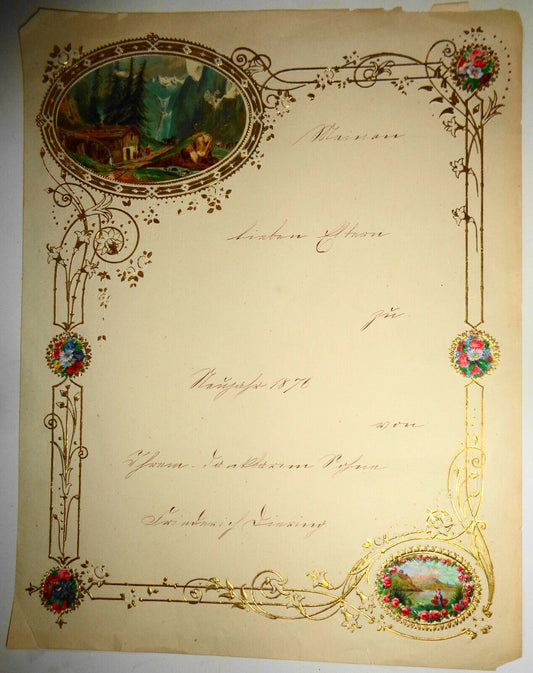 Meinen
lieben Eltern
zu
Neujahr 1876
von
Ihrem dankbaren Sohne
Friederich Diering